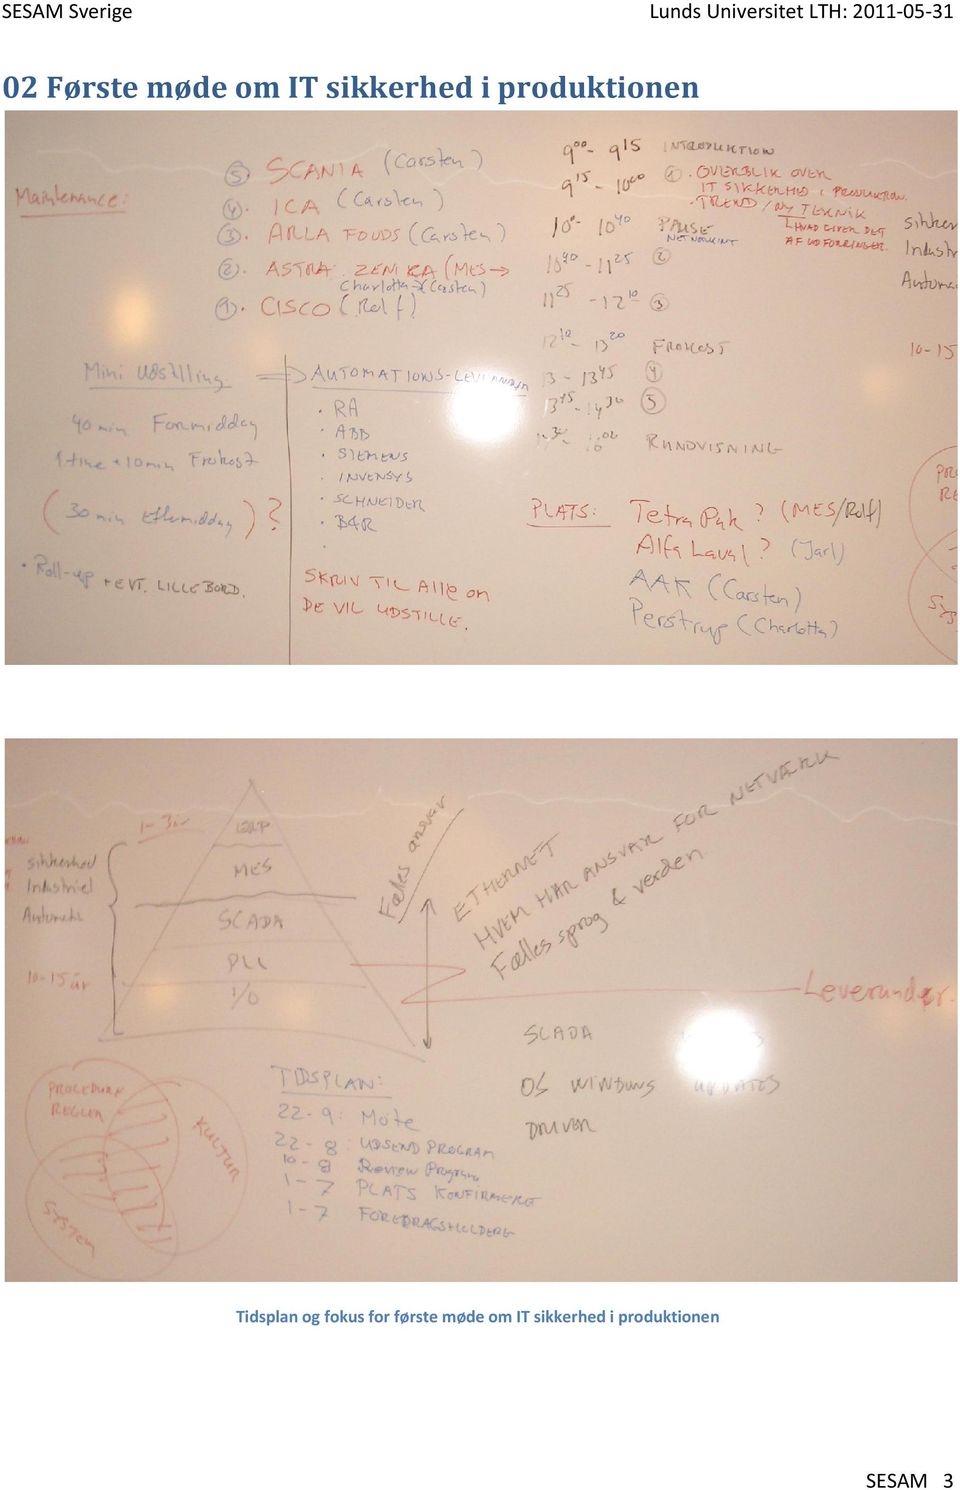 SESAM Sverige
Lunds Universitet LTH: 2011-05-31
02 Første møde om IT sikkerhed i produktionen
Maintenance:
5. SCANIA (Carsten)
4. ICA (Carsten)
3. ARLA FOODS (Carsten)
2. ASTRA ZENIKA (MES→
Charlotta → Carsten)
1. CISCO (Rolf)
9⁰⁰- 9¹⁵ INTRODUKTION
9¹⁵ - 10⁰⁰ 1. OVERBLIK OVER
IT SIKKERHED I PRODUKTION.
• TREND / NY TEKNIK
HVAD GIVER DET
AF UDFORDRINGER.
10⁰⁻ 10⁴⁰ PAUSE
NETWORKING
10⁴⁰ - 11²⁵ 2
11²⁵ - 12¹⁰ 3
12¹⁰ - 13²⁰ FROKOST
13 - 13⁴⁵ 4
13⁴⁵ - 14³⁰ 5
RUNDVISNING
Sikker
Industr
Automa
10-15
Mini Udstilling
40 min Formiddag
1 time + 10 min Frokost
(30 min Eftermiddag)?
• Roll-up + EVT. LILLE BORD.
AUTOMATIONS-
• RA
• ABB
• SIEMENS
• INVENSYS
• SCHNEIDER
• B&R
SKRIV TIL Alle on
DE VIL UDSTILLE.
PLATS: Tetra Pak? (MES/Rolf)
Alfa Laval? (Jarl)
AAK (Carsten)
Perstrup (Charlotta)
PR
RE
SYS
1-3 år
sikkerhed
Industriel
Automati
10-15 år
ERP
MES
SCADA
PLC
I/O
Fælles ansvar
ETHERNET
HVEM HAR ANSVAR FOR NETVÆRK
Fælles sprog & verden
Leverandør.
SCADA
OS WINDOWS UPDATES
DRIVER
PROCEDURE
REGLER
KULTUR
SYSTEM
TIDSPLAN:
22-9: Møte
22-8: UDSEND PROGRAM
10-8 Review Program
1-7 PLATS KONFIRMERE
1-7 FOREDRAGSHOLDERE
Tidsplan og fokus for første møde om IT sikkerhed i produktionen
SESAM 3